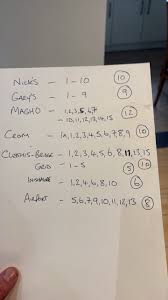 NICK'S - 1 - 10 (10)
GARY'S - 1 - 9 (9)
MAGHO - 1,2,3,5,6,7
- 10,11,12,13,14,15 (12)
CROM - 1A,1,2,3,4,5,6,7,8,9 (10)
- BRIDGE - 1,2,3,4,5,6,8,11,13,15 (10)
GRID - 1 - 5 (5)
INISHMORE - 1,2,4,6,8,10 (6)
AIRPORT - 5,6,7,9,10,11,12,13 (8)